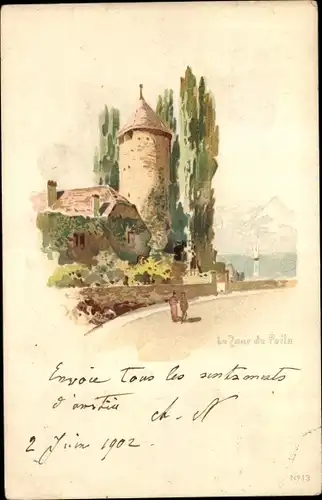 La Tour du Peilz
Envoie tous les sentiments
d'amitié A. N
2 Juin 1902.
No 13